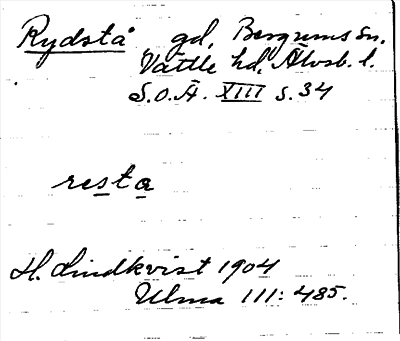 Rydstå gd, Bergums sn.
Vättle hd, Älvsb. l.
S.O.Ä. XIII s. 34
resta
H. Lindkvist 1904
Ulma 111: 485.